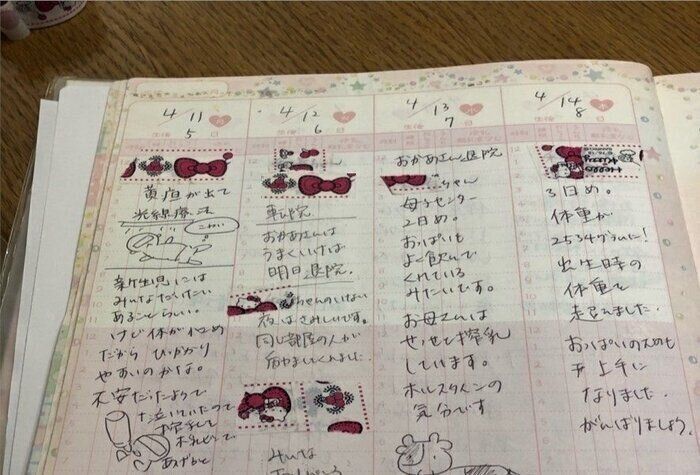 4/11
生後 5 日
黄疸が出て
光線療法
こわい
新生児には
みんなだいたい
あることらしい。
けど体が
だから ひっかかり
やすいのかな。
不安だったようで
泣いていたので
搾乳して
あげると
4/12
生後 6 日
転院
おかあさんは
うまくいけば
明日退院。
ちゃんのいない
夜はさみしいです。
同じ部屋の人が
4/13
生後 7 日
おかあさん退院
ちゃん
母子センター
2日め。
おっぱいも
よく飲んで
くれている
みたいです。
お母さんは
せっせと搾乳
しています。
ホルスタインの
気分です
4/14
生後 8 日
3日め。
体重が
2534グラムに!
出生時の
体重を
超えました。
おっぱいのむのも
上手に
なりました。
がんばりましょう。